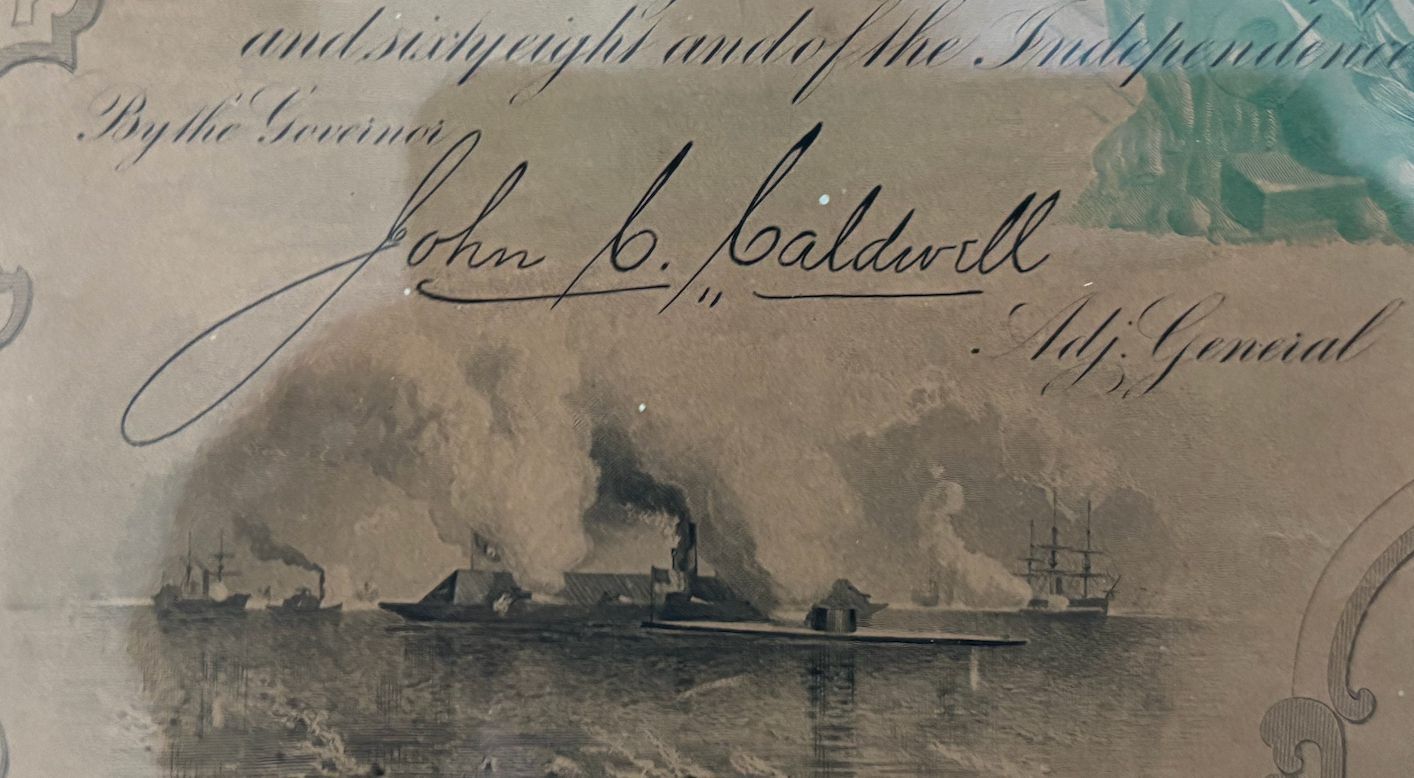 and sixty eight and of the Independence
By the Governor
John C. Caldwell
Adj. General